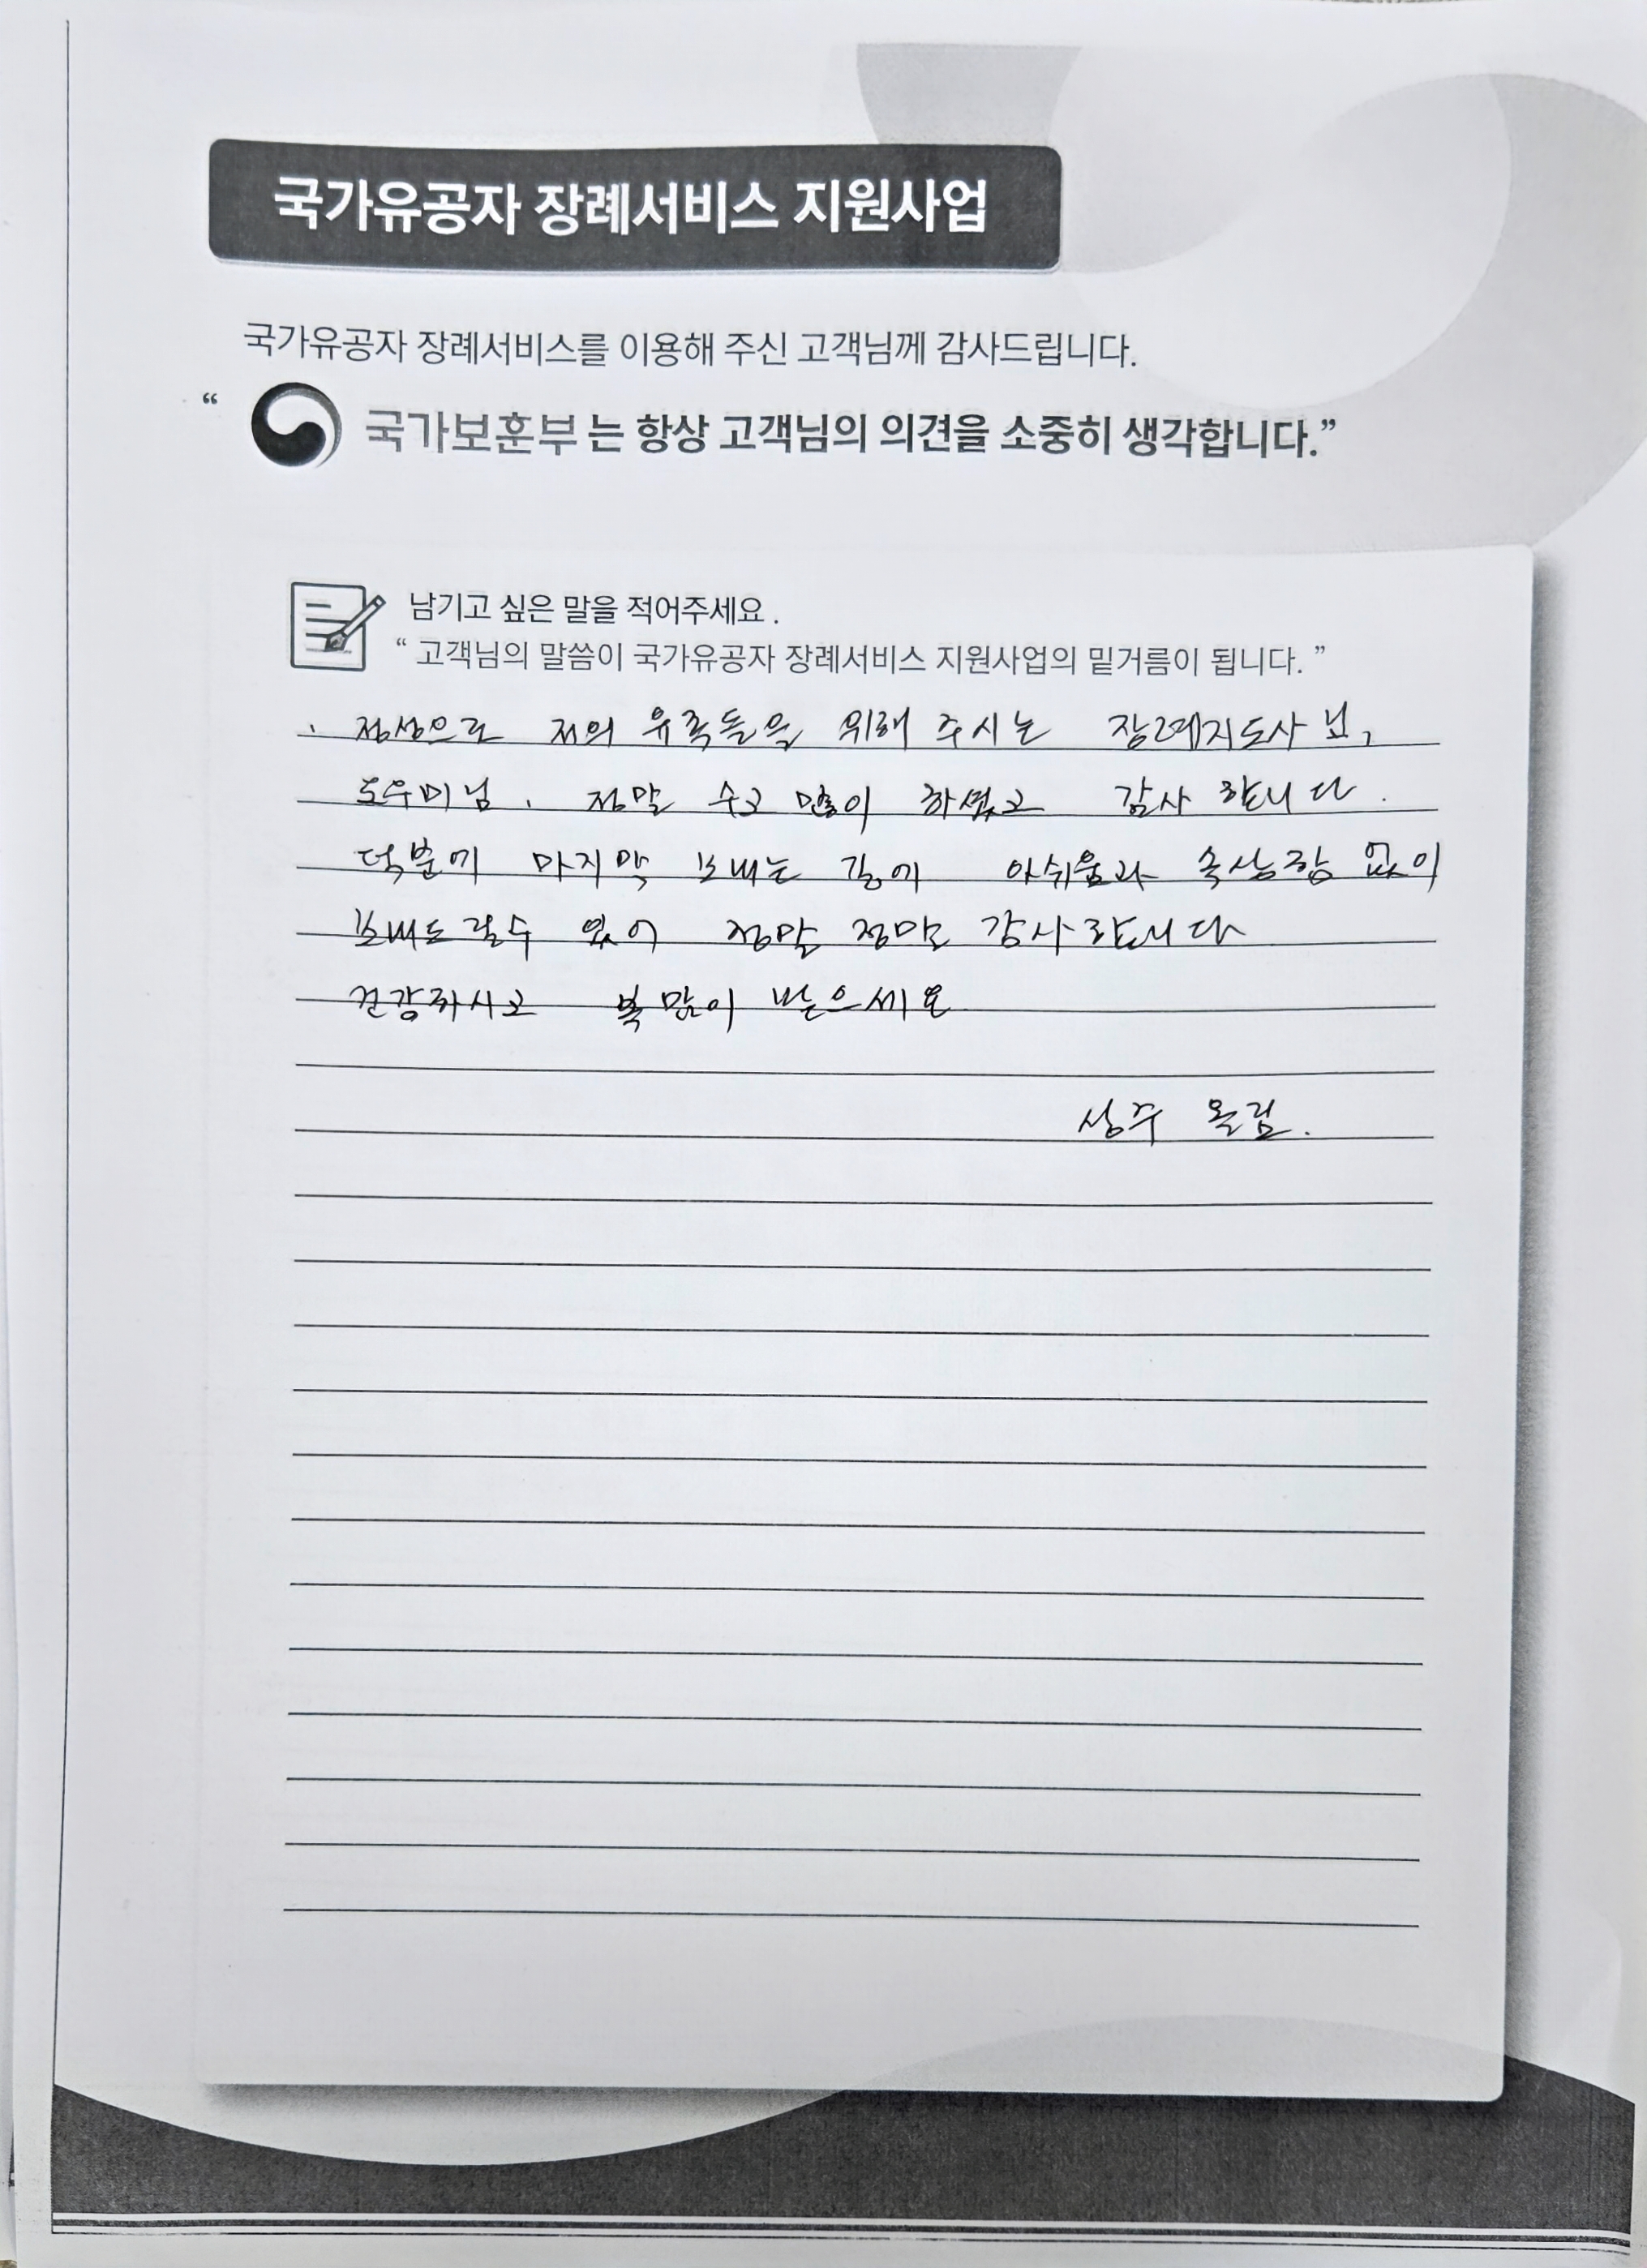 국가유공자 장례서비스 지원사업
국가유공자 장례서비스를 이용해 주신 고객님께 감사드립니다.
“ 국가보훈부 는 항상 고객님의 의견을 소중히 생각합니다.”
남기고 싶은 말을 적어주세요 .
“ 고객님의 말씀이 국가유공자 장례서비스 지원사업의 밑거름이 됩니다. ”
. 정성으로 저의 유족들을 위해 주시는 장례지도사 님,
도우미님 . 정말 수고 많이 하셨고 감사 합니다 .
덕분에 마지막 보내는 길에 아쉬움과 속상함 없이
보내드릴수 있어 정말 정말 감사합니다
건강하시고 복 많이 받으세요
상주 올림.